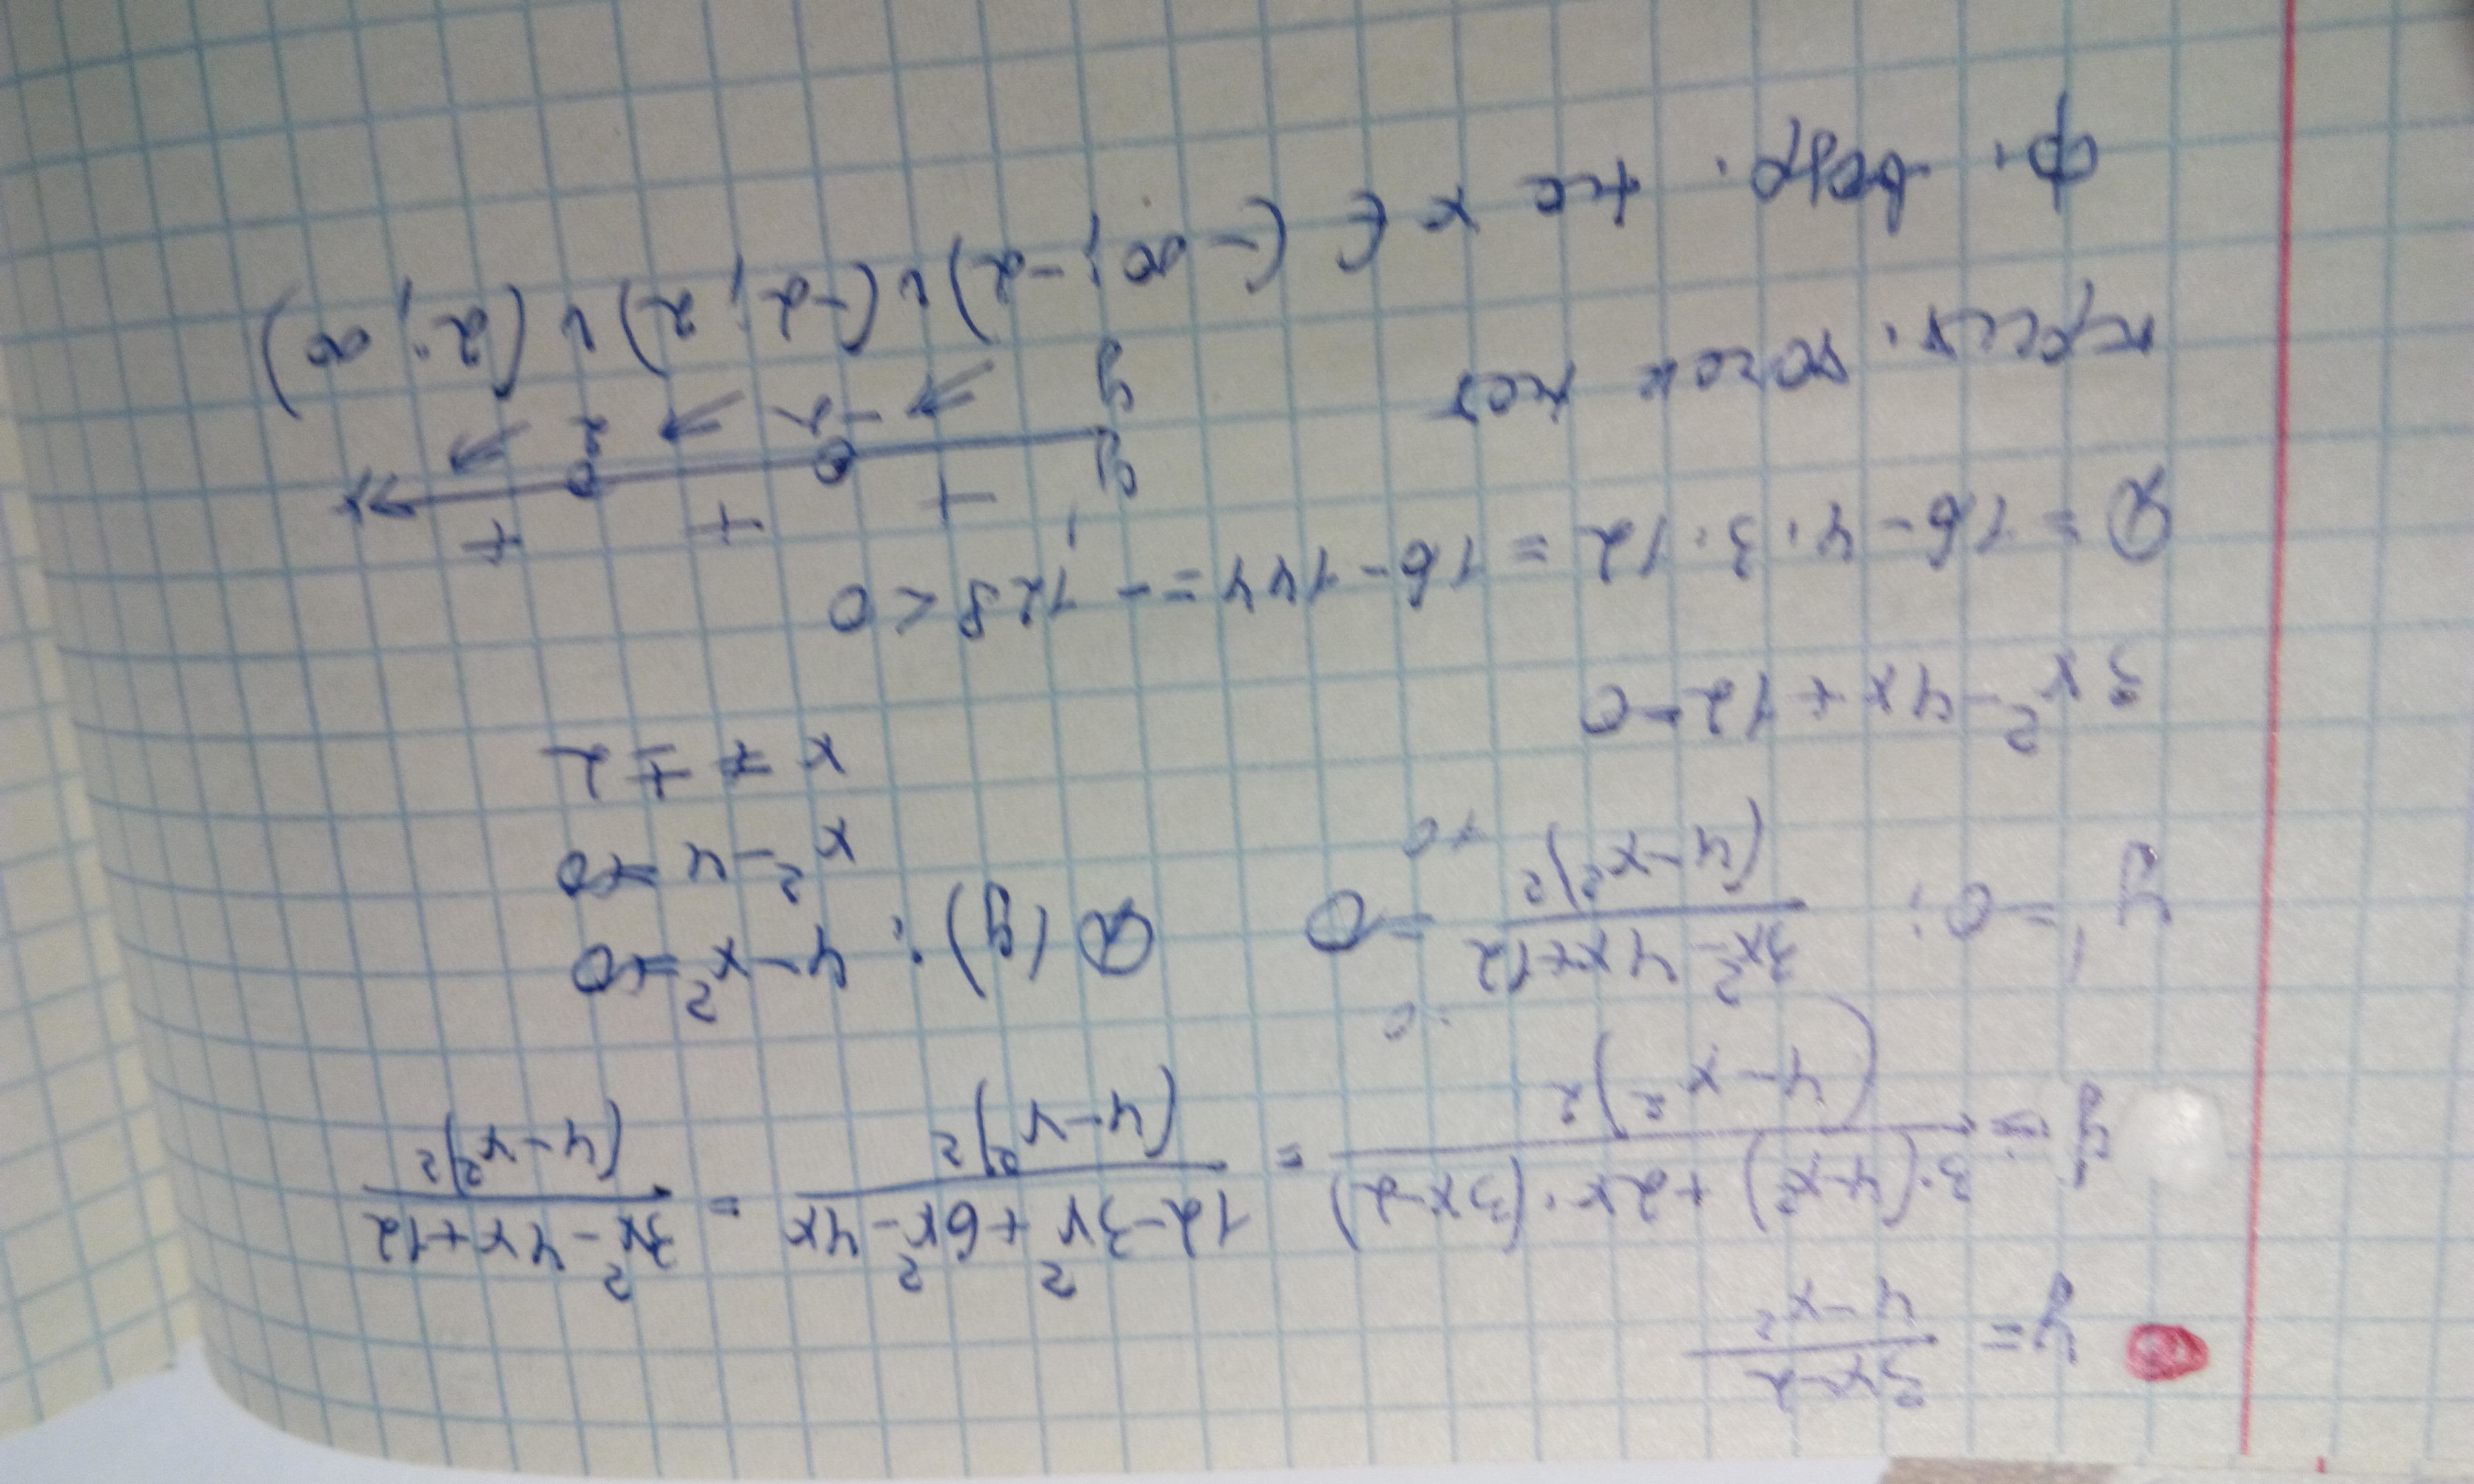 y = (3x-2)/(4-x²)
y' = (3·(4-x²)+2x·(3x-2))/(4-x²)² = (12-3x²+6x²-4x)/(4-x²)² = (3x²-4x+12)/(4-x²)²
y'=0: (3x²-4x+12)/(4-x²)² =0 D(y): 4-x²≠0
x²-4≠0
x ≠ ±2
3x²-4x+12=0
D=16-4·3·12=16-144=-128<0
y' + + +
y -2 2 x
крит. точек нет
ф. возр. на x ∈ (-∞;-2)∪(-2;2)∪(2;∞)